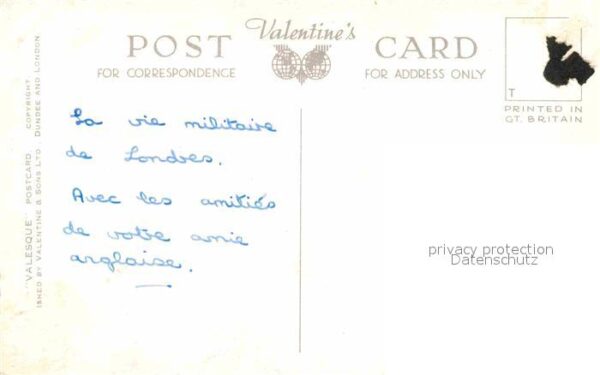 Valentine's
POST CARD
FOR CORRESPONDENCE
FOR ADDRESS ONLY
T
PRINTED IN
GT. BRITAIN
"VALESQUE" POSTCARD. COPYRIGHT.
ISSUED BY VALENTINE & SONS LTD. DUNDEE AND LONDON.
La vie militaire
de Londres.
Avec les amitiés
de votre amie
anglaise.
privacy protection
Datenschutz